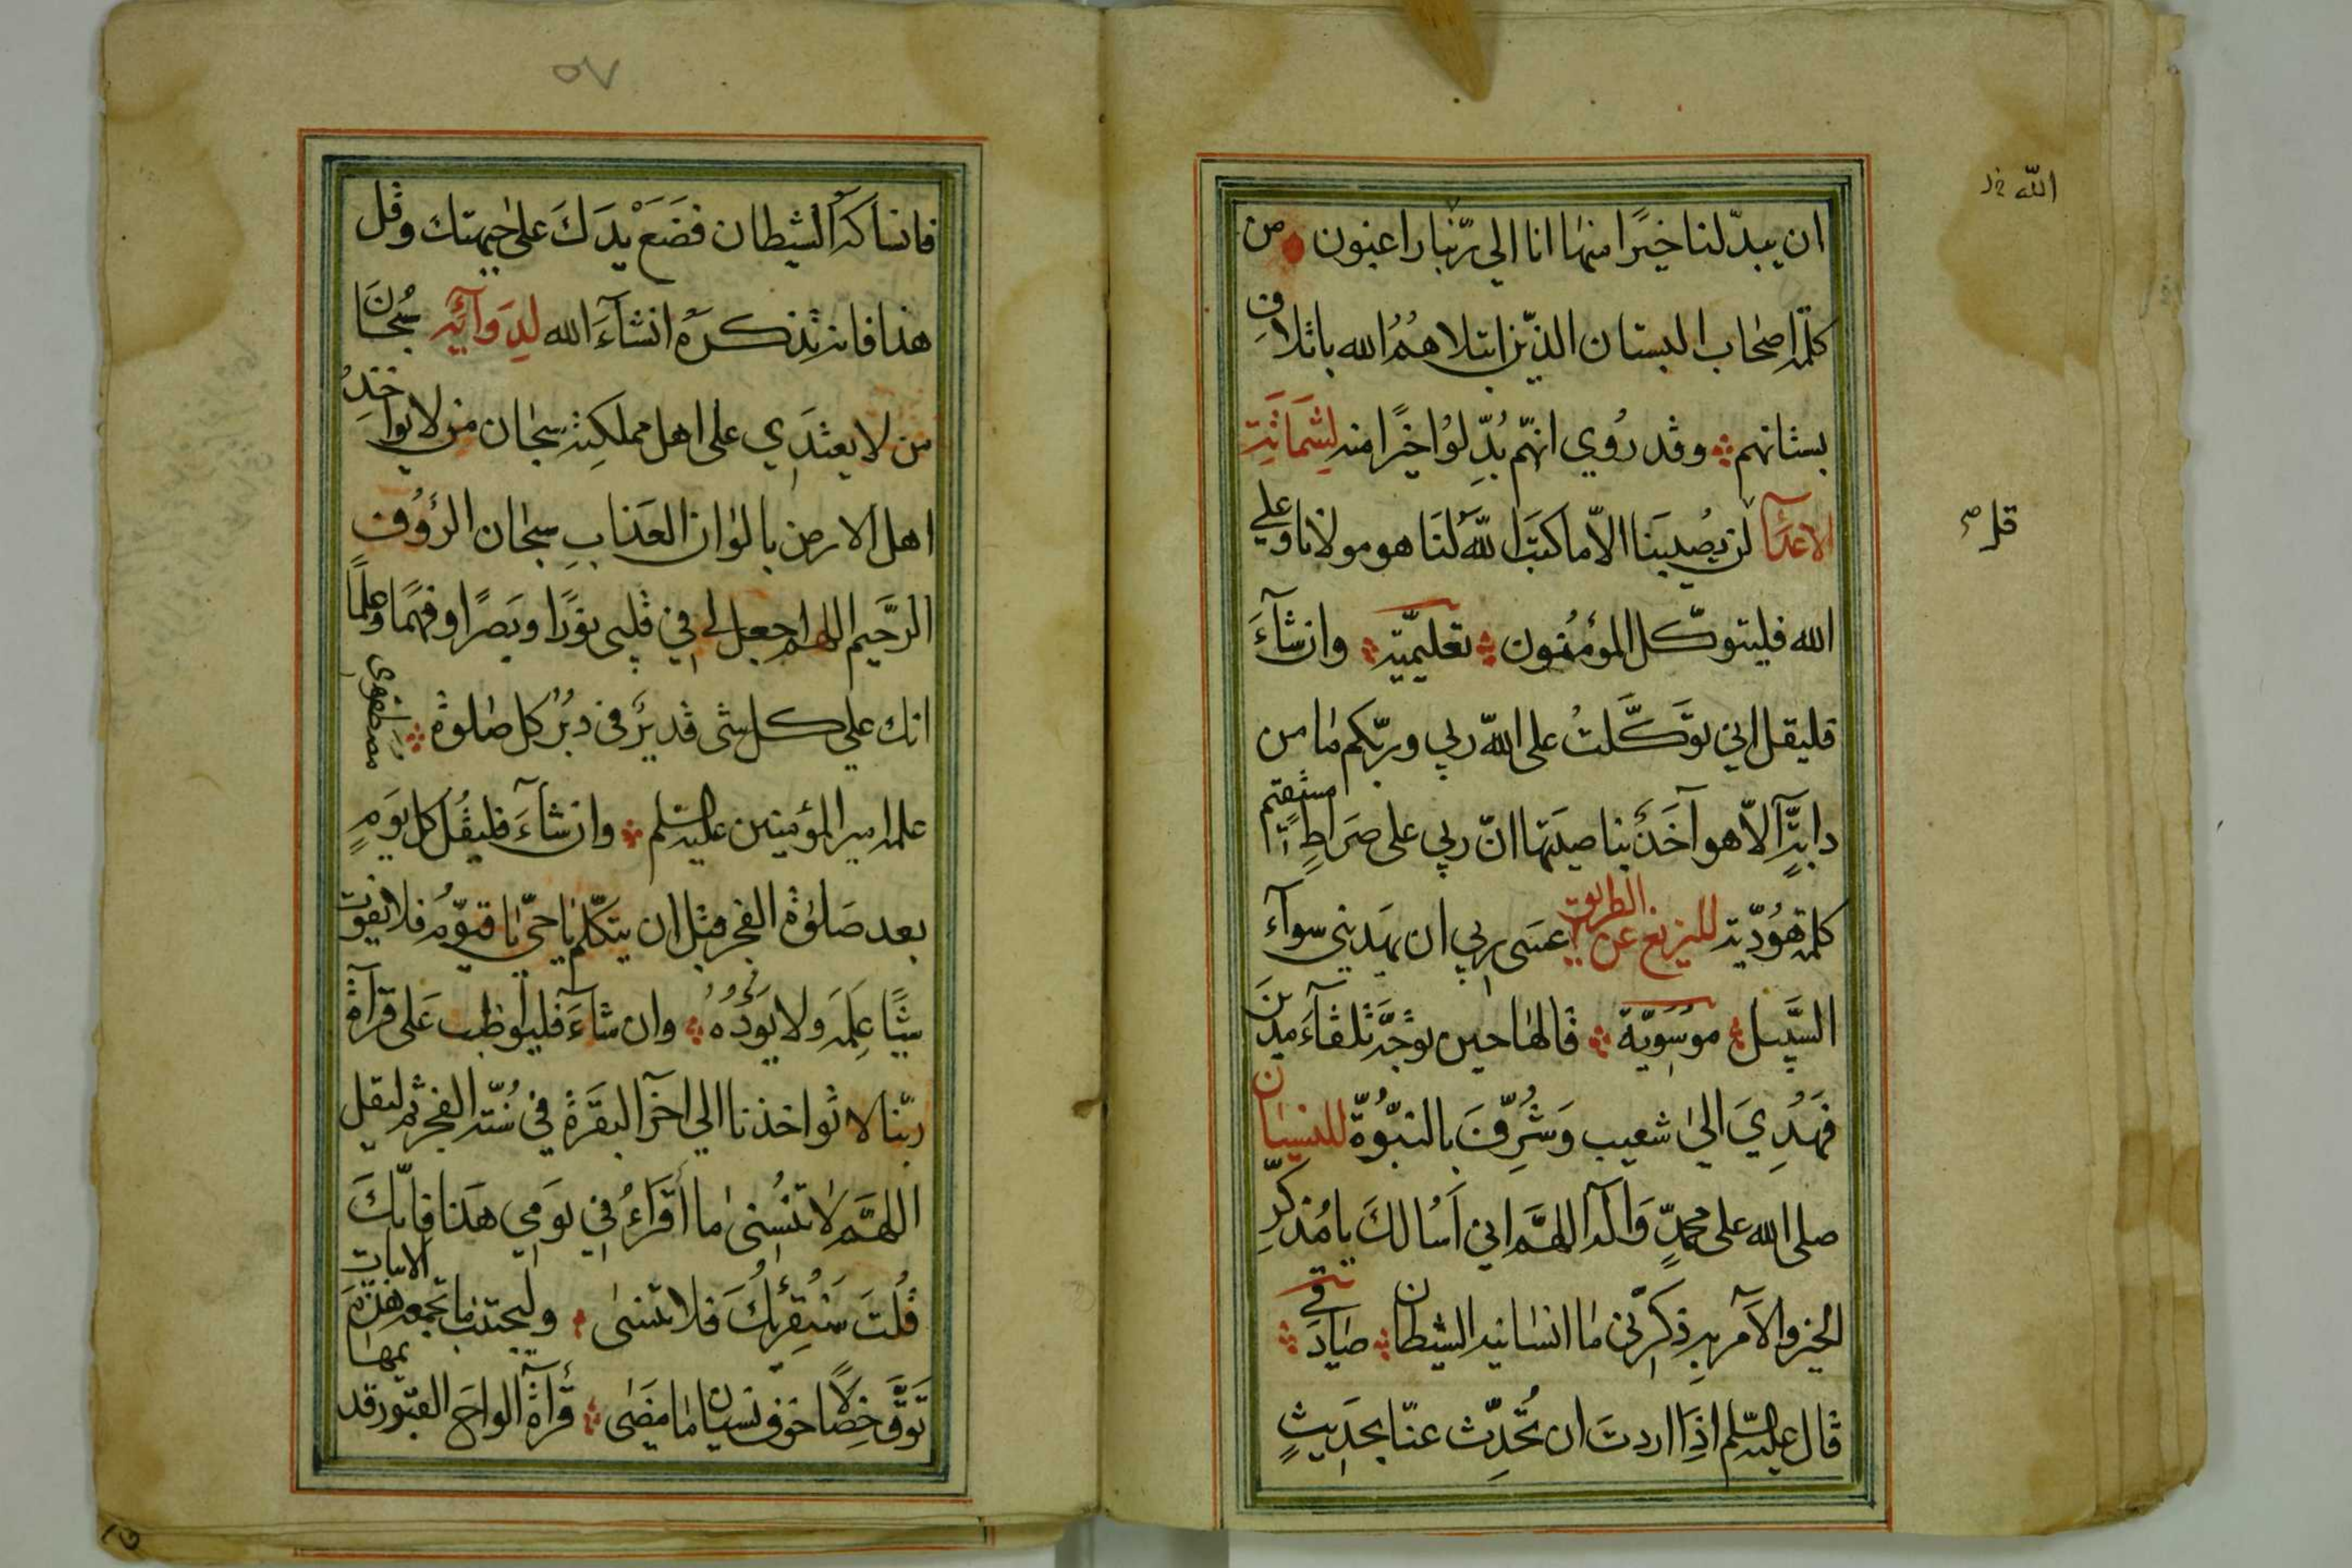 ان يبدّلنا خيرًا منها انا الى ربّنا راغبون من
كلمة اصحاب البستان الذين ابتلاهمُ الله باتلاف
بستانهم وقد رُوي انهّم بُدِّلوُا خيرًا منه لِشَماتَةِ
الاعدآء لن يصُيبَنا الاّ ما كتبَ اللهُ لنَا هو مولانا وعلى
الله فليتوكّل المؤمنون تعليميّة وان شآءَ
فليقل اني توَكَّلتُ على الله ربي وربّكم مٰا من
دابّةٍ الاّ هو آخذٌ بناصيتها انّ ربي على صِرَاطٍ مستقيم
كلمة هوُديّة للزيغ عن الطريق عسَى ربي ان يهَديني سوآء
السَّبيل موسَويّة قالهٰا حين توجّهَ تلقآءَ مدين
فَهُدِيَ الىٰ شعيب وَشُرِّفَ بالنبُوّة للنسيٰان
صلى الله على محمدٍ وَآله اللهمَّ اني اَسْالكَ يا مُذكّرِ
الخير والآمر بهِ ذكِرّني مٰا انسٰانيه الشيطان صٰادقي
قال عليه السّلم اذِا اردتَ ان تُحدِّث عنّا بحدَيثٍ
الله خد
قل صح
٥٧
فانسٰاكه الشيطان فضَعَ يدَكَ على جبهتك وقل
هذا فانه تذكره انشآءَ الله لدِوَآئهِ سُبحٰانَ
من لا يعتدَي على اهل مملكتِه سبحٰان من لا يواخذُ
اهل الارض بالوٰان العَذابِ سبحٰان الرؤوُف
الرَّحيم اللهم اجعل لي في قلبى نوُرًا وبَصرًا وفهمًا وعلمًا
انك على كل شى قديرٌ في دبُرُ كل صٰلوٰة مصطفوى
علمه امير المؤمنين عليه السّلم وان شآءَ فليقُل كل يَومٍ
بعد صَلوٰة الفجر قبل ان يتكلّم يٰا حىّ يٰا قيوّمُ فلا يفوت
شيئًا عِلمَه ولا يَؤُدُهُ وان شآءَ فليوٰاظب عَلى قرآءة
ربّنا لا تواخذنا الى آخر البقَرَة في سُنّة الفجر ثم ليقل
اللهمَّ لا تنُسِنىٰ ما أقرَاءُ في يَومي هَذا فانّكَ
قلُتَ سَنُقرِئكَُ فلا تنسىٰ وليجتنب مٰا تجمعه هٰذه الابيات
تَوقَّ خِصٰالًا خوف نسيان مٰا مضَى قرآءة الواح القبور تديمها